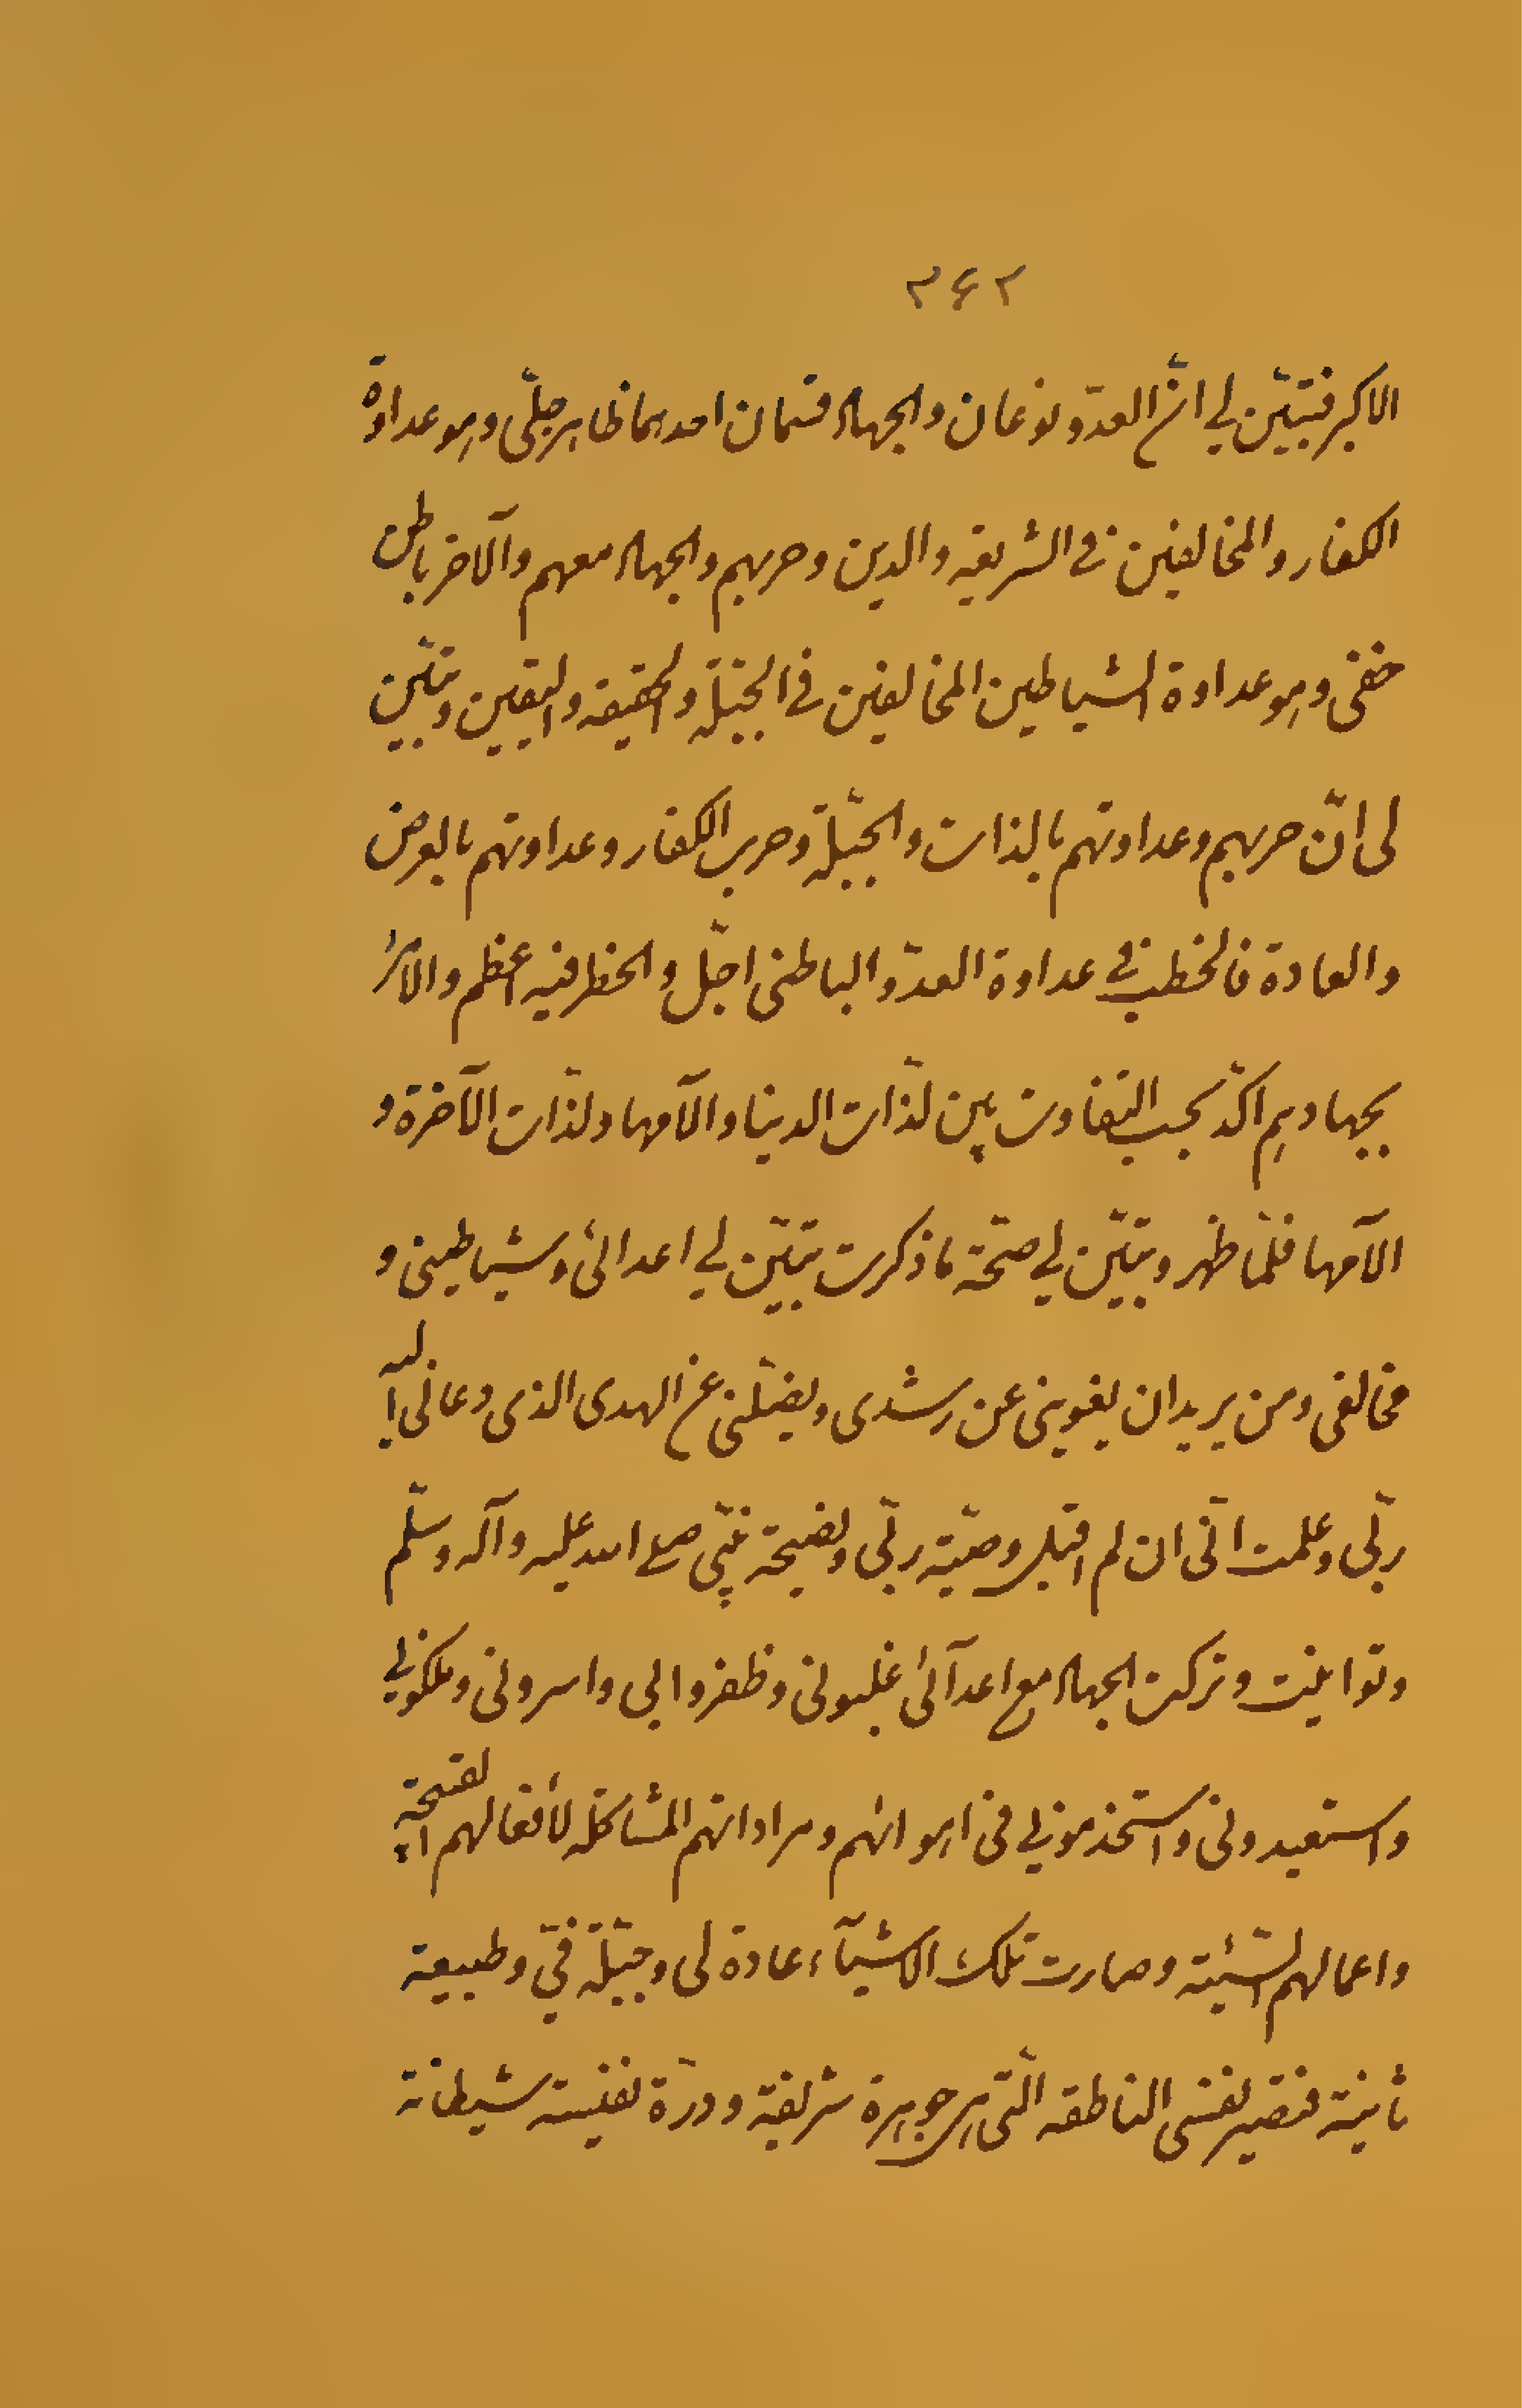 ۲۶۲
الاكبر فتبيّن لي انّ العدوّ نوعان والجهاد قسمان احدهما ظاهر جلّى وهو عداوة
الكفار والمخالفين في الشريعه والدين وحربهم والجهاد معهم والآخر باطن
خفى وهو عداوة الشياطين المخالفين في الجبلّة والحقيقه واليقين وتبيّن
لى انّ حربهم وعداوتهم بالذات والجبلّة وحرب الكفار وعداوتهم بالعرض
والعادة فالخطب في عداوة العدوّ الباطنى اجلّ والخطر فيه اعظم والامر
بجهادهم اكدّ بحسب التفاوت بين لذّات الدنيا والآمها ولذّات الآخرة و
الآمها فلمّا ظهر وتبيّن لي صحّة ما ذكرت تبيّن لي اعدائى وشياطينى و
مخالفى ومن يريد ان يغوينى عن رشدى ويضلّنى عن الهدى الذى دعانى اليه
ربّى وعلمت انّى ان لم اقبل وصيّة ربّى ونصيحة نبيّى صلى الله عليه وآله وسلّم
وتوانيت وتركت الجهاد مع اعدآئى غلبونى وظفروا بى واسرونى وملكوني
واستعبدونى واستخدمونى في اهوائهم ومراداتهم المشاكله لأفعالهم القبيحة
واعمالهم السّيئة وصارت تلك الاشيآء عادة لى وجبلّة فيّ وطبيعة
ثانية فتصير نفسى الناطقه الّتى هى جوهرة شريفة ودرّة نفيسة شيطانة